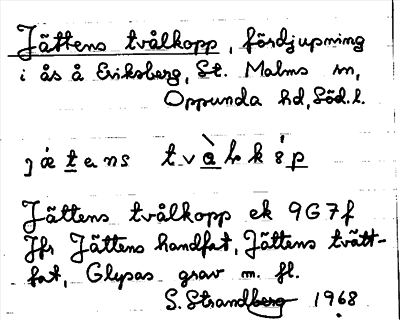 Jättens tvålkopp, fördjupning
i ås å Eriksberg, St. Malms sn,
Oppunda hd, Söd. l.
jǽtens tvålkȯp
Jättens tvålkopp ek 9G7f
Jfr Jättens handfat, Jättens tvätt-
fat, Glysas grav m. fl.
S. Strandberg 1968